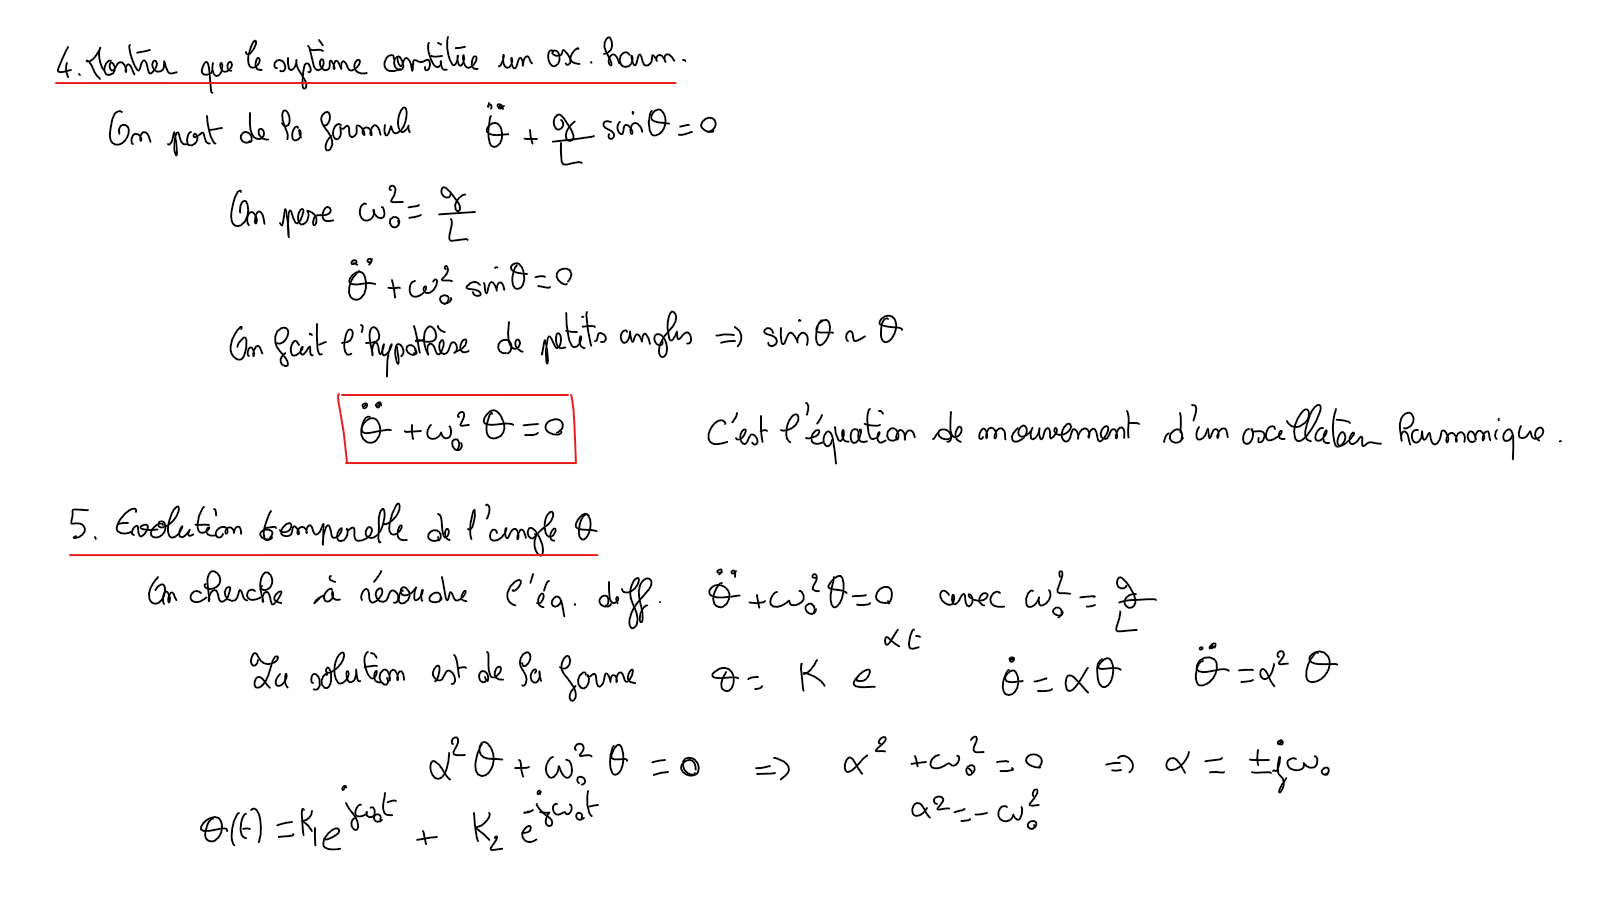 4. Montrer que le système constitue un os. harm.
On part de la formule θ̈ + g/L sinθ = 0
On pose ω₀² = g/L
θ̈ + ω₀² sinθ = 0
On fait l'hypothèse de petits angles ⇒ sinθ ~ θ
θ̈ + ω₀² θ = 0 C'est l'équation de mouvement d'un oscillateur harmonique.
5. Evolution temporelle de l'angle θ
On cherche à résoudre l'éq. diff. θ̈ + ω₀² θ = 0 avec ω₀² = g/L
La solution est de la forme θ = K e^{αt} θ̇ = αθ θ̈ = α² θ
α² θ + ω₀² θ = 0 ⇒ α² + ω₀² = 0 ⇒ α = ± jω₀
α² = - ω₀²
θ(t) = K₁ e^{jω₀t} + K₂ e^{-jω₀t}